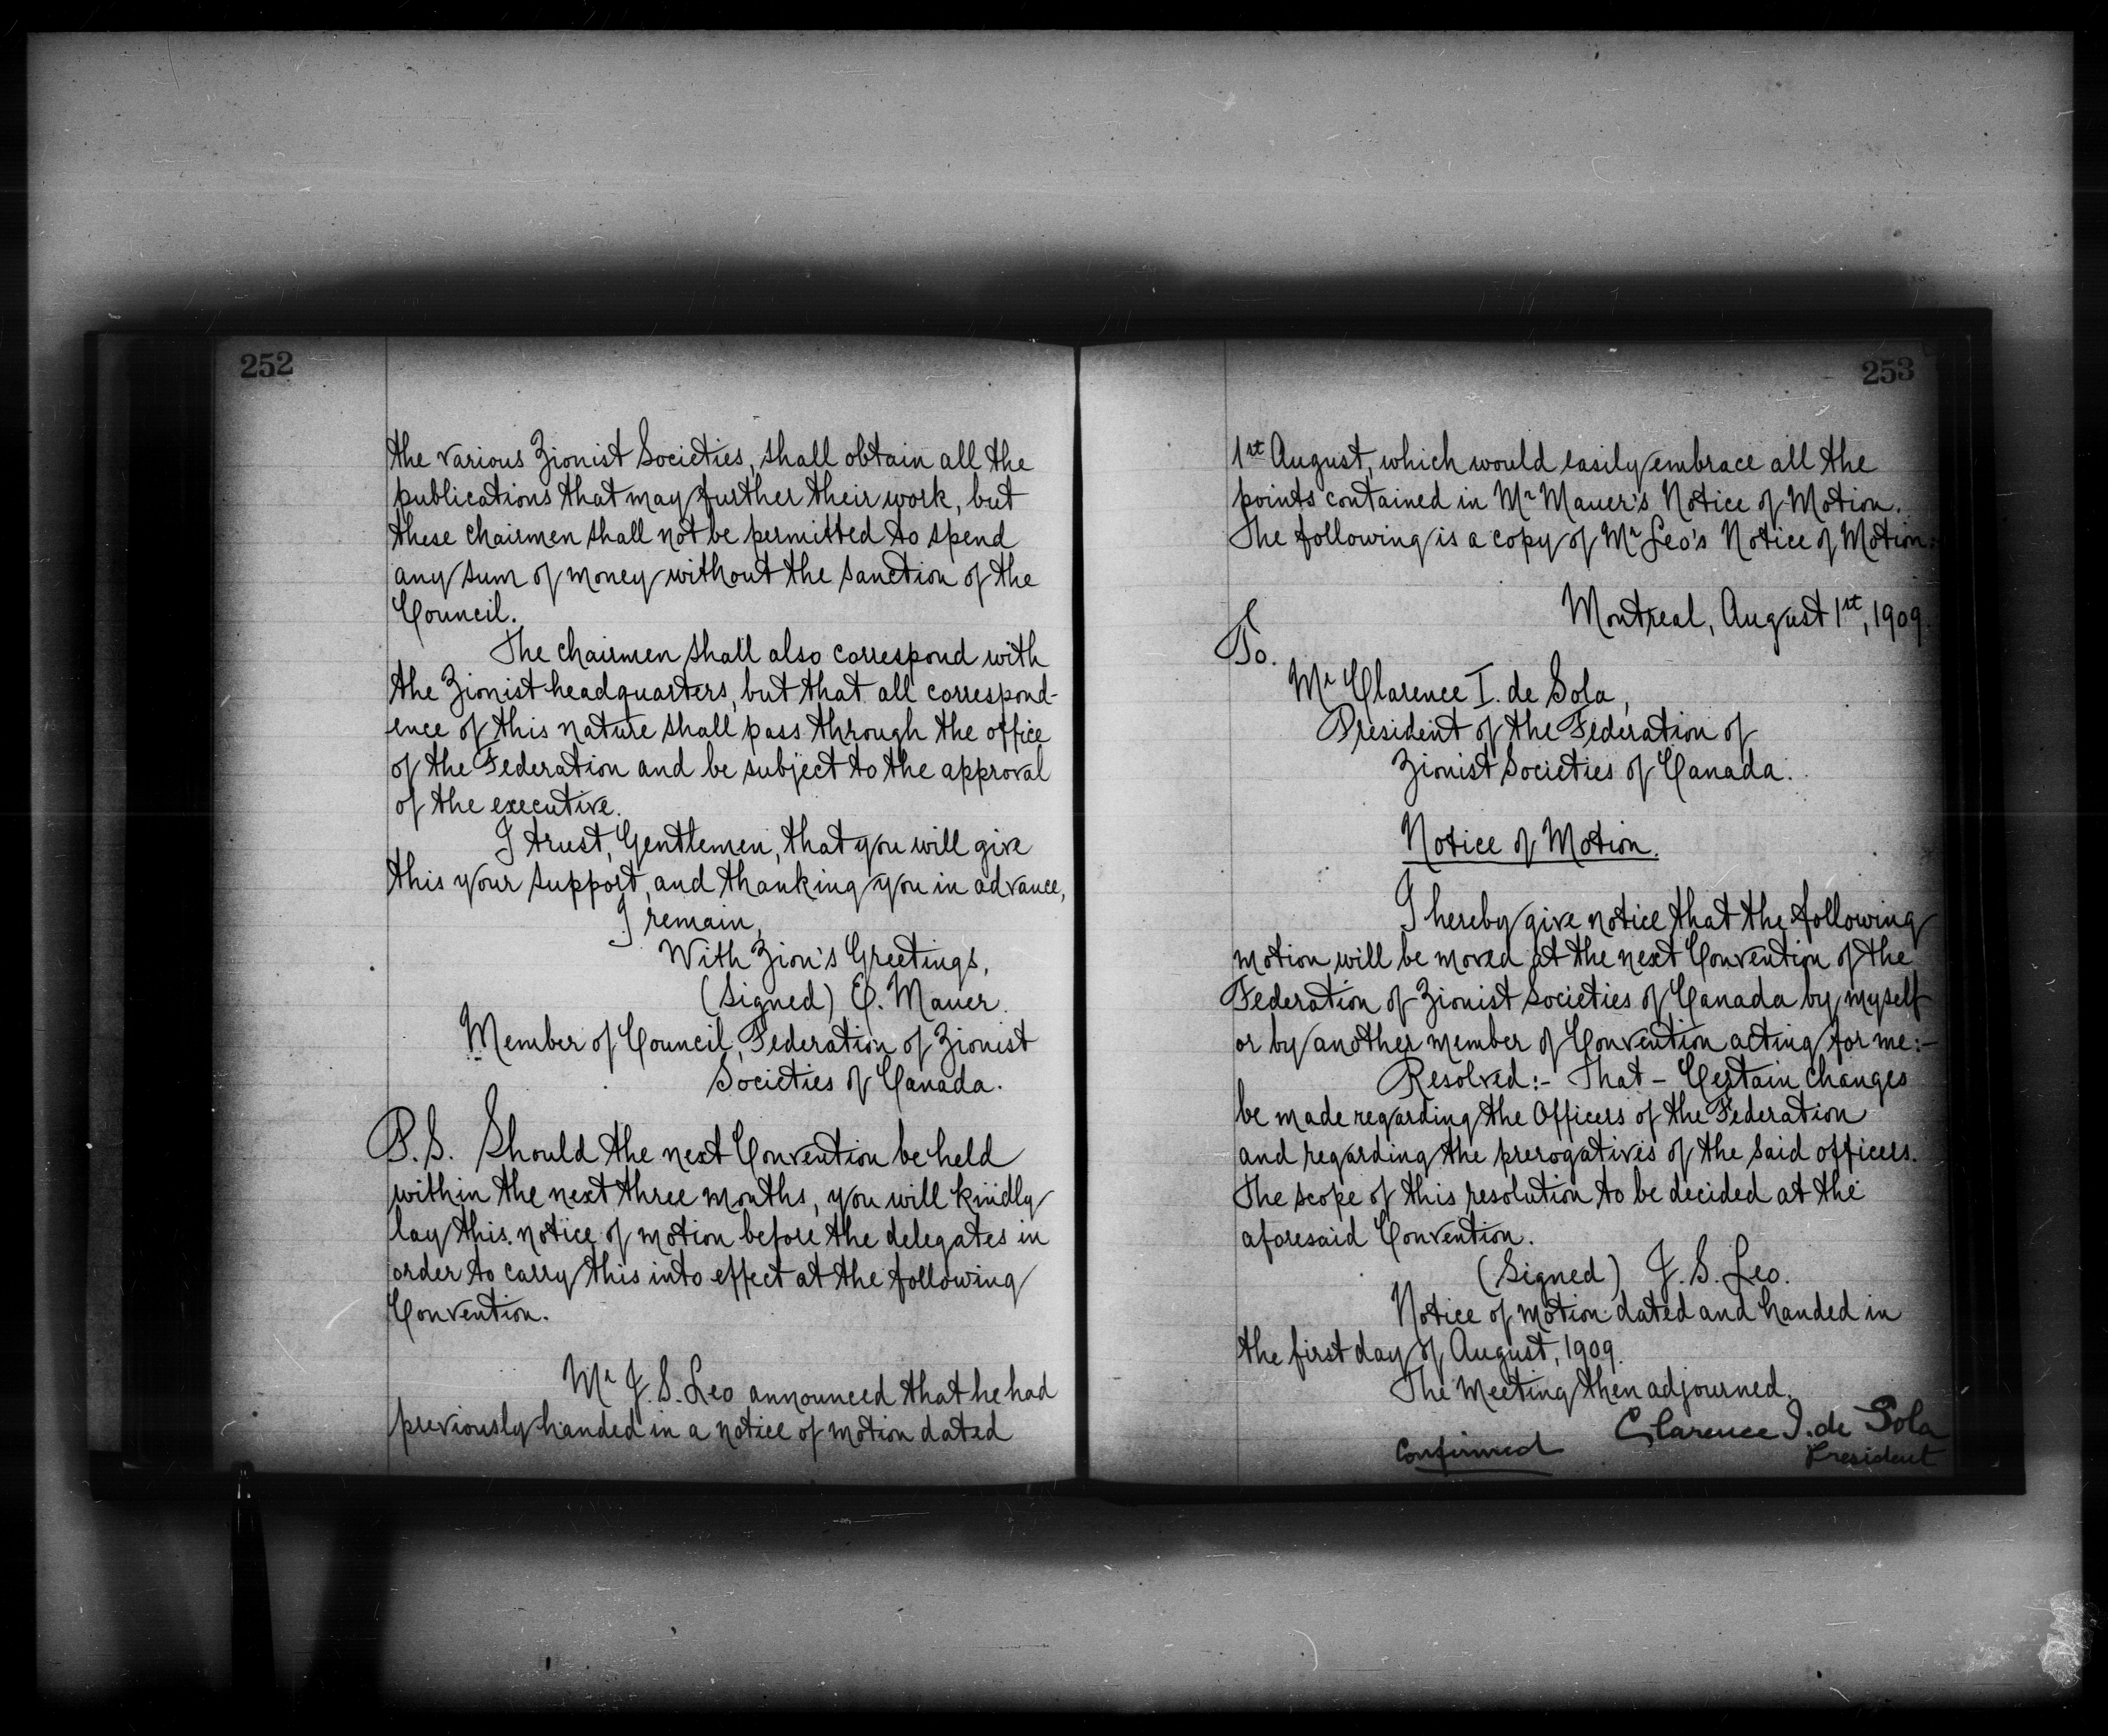 252
the various Zionist Societies, shall obtain all the
publications that may further their work, but
these chairmen shall not be permitted to spend
any sum of money without the sanction of the
Council.
The chairmen shall also correspond with
the Zionist headquarters, but that all correspond-
ence of this nature shall pass through the office
of the Federation and be subject to the approval
of the executive.
I trust, Gentlemen, that you will give
this your support, and thanking you in advance,
I remain,
With Zion's Greetings,
(Signed) E. Mauer.
Member of Council, Federation of Zionist
Societies of Canada.
P.S. Should the next Convention be held
within the next three months, you will kindly
lay this notice of motion before the delegates in
order to carry this into effect at the following
Convention.
Mr J. S. Leo announced that he had
previously handed in a notice of motion dated
253
1st August, which would easily embrace all the
points contained in Mr Mauer's Notice of Motion.
The following is a copy of Mr Leo's Notice of Motion:
Montreal, August 1st, 1909.
To.
Mr Clarence I. de Sola,
President of the Federation of
Zionist Societies of Canada.
Notice of Motion.
I hereby give notice that the following
motion will be moved at the next Convention of the
Federation of Zionist Societies of Canada by myself
or by another member of Convention acting for me:-
Resolved:- That - Certain changes
be made regarding the Officers of the Federation
and regarding the prerogatives of the said officers.
The scope of this resolution to be decided at the
aforesaid Convention.
(Signed) J. S. Leo.
Notice of motion dated and handed in
the first day of August, 1909.
The Meeting then adjourned.
Clarence I. de Sola
Confirmed
President